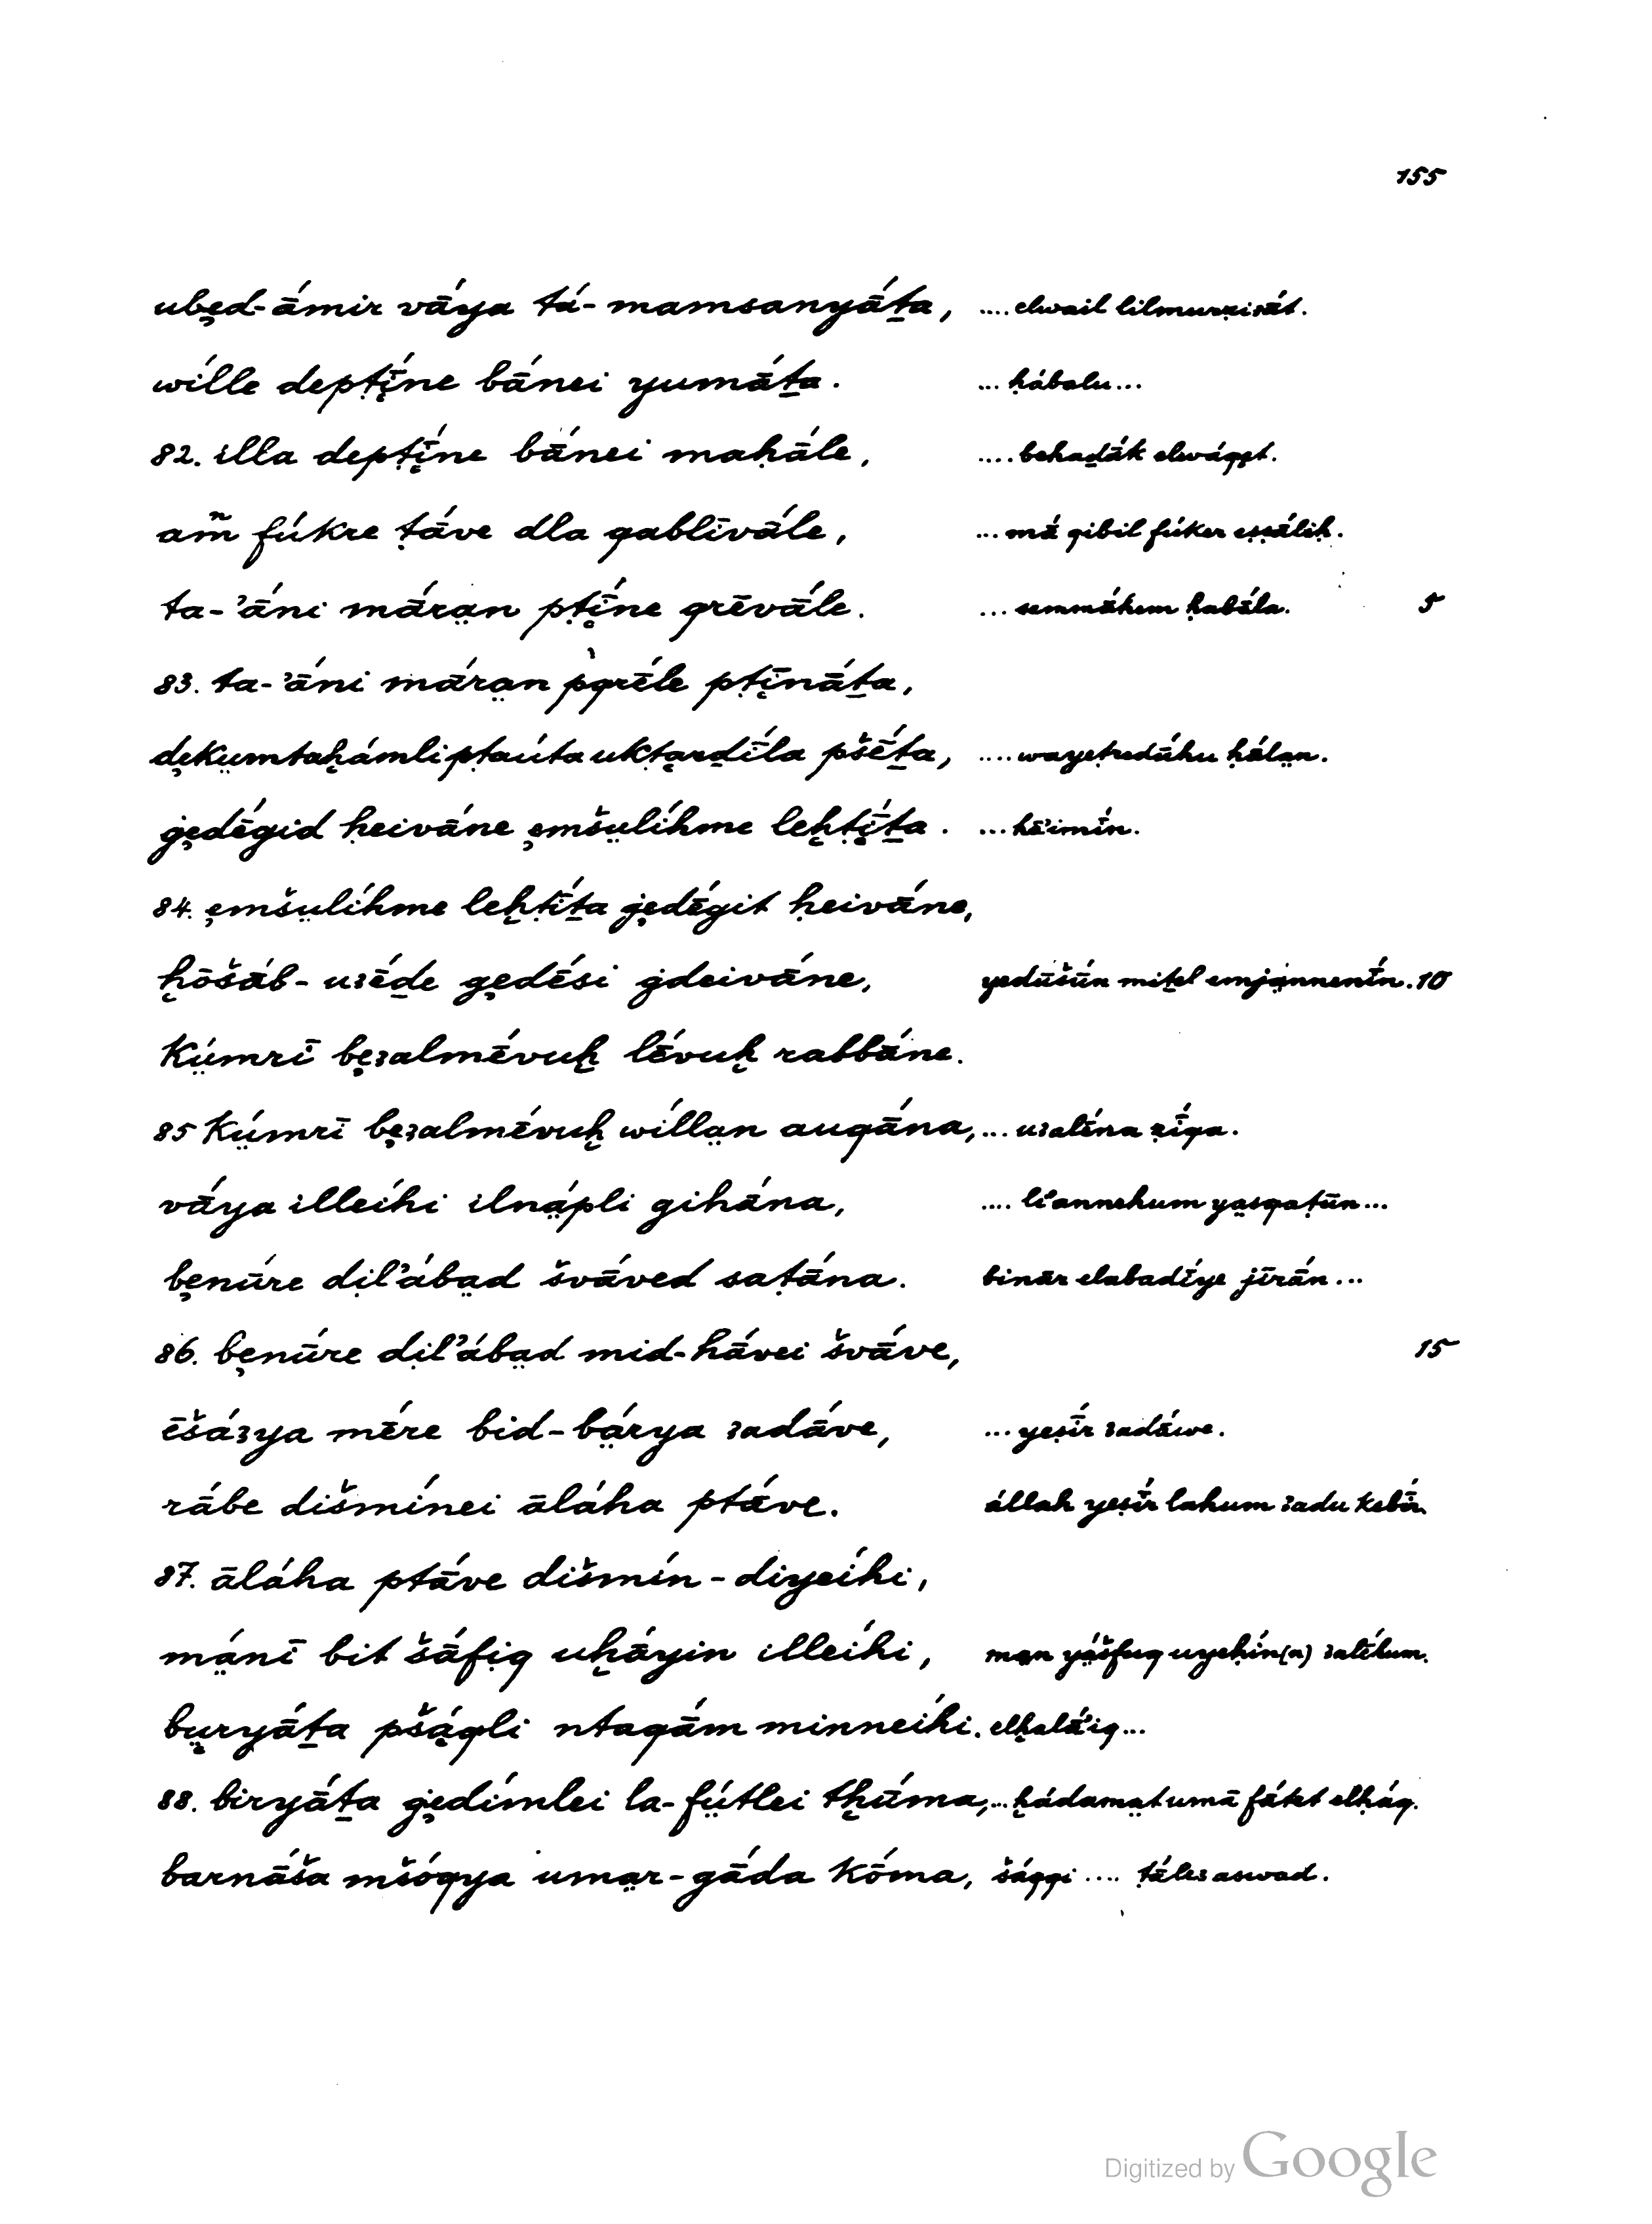 155
ubȩd-ā́mir vā́ya tá-mamsanyā́ṯa, .... elwail lilmurẓiʿāt.
wílle depṭī́ne bānei yumā́ṯa. ... ḥábalu...
82. illa depṭī́ne bā́nei maḥā́le, .... behaḏāk elwáqet.
am̃ fúkre ṭā́ve dla qablīvā́le, ... mā qibil fúker eṣṣāliḥ.
ta-ʾā́ni mā́ran pṭī́ne grēvā́le. ... semmā́hem ḥabā́la. 5
83. ta-ʾā́ni mā́ran pqrḗle pṭīnā́ṯa,
dȩkumtaḫámli ptaúta uktarḏī́la pšḗṯa, .... wayeṭrudūhu ḥálan.
ġȩdḗgid ḥeivā́ne ȩmšulíhme leḫṭī́ṯa. ... hāʾimī́n.
84. ȩmšulíhme leḫṭī́ṯa ġȩdḗgit ḥeivā́ne,
ḫōšāb-uʿḗḏe gȩdḗsi ġdeivā́ne, yedūšūn miṯel emjannenī́n. 10
Kúmrī bȩʿalmḗvuḫ lḗvuḫ rabbā́ne.
85 Kúmrī bȩʿalmḗvuḫ wíllan auqā́na, ... uʿalḗna ẓī́qa.
vā́ya illeíhi ilnápli gihā́na, .... liʾannehum yasqaṭūn...
bȩnūre dilʾábad švā́ved saṭā́na. binār elabadī́ye jīrā́n...
86. bȩnūre dilʾábad mid-hā́vei švā́ve, 15
ēšáʿya mḗre bid-bárya ʿadā́ve, ... yeṣī́r ʿadā́we.
rā́be dišmínei ālā́ha ptā́ve. állah yeṣī́r lahum ʿadu kebī́r.
87. ālā́ha ptā́ve dišmín-diyeíhi,
mánī bit šā́fiq uḫā́yin illeíhi, man yášfuq uyeḥín(n) ʿalḗhum.
buryā́ṯa pšáqli ntaqā́m minneíhi. elḫalā́ʾiq...
88. biryā́ṯa ġȩdímlei la-fútlei tḫū́ma, ... ḫádamat umā fātet elḥáq.
barnā́ša mšóqya umar-gā́da kṓma, šáqqi .... ṭāleʿ aswad.
Digitized by Google